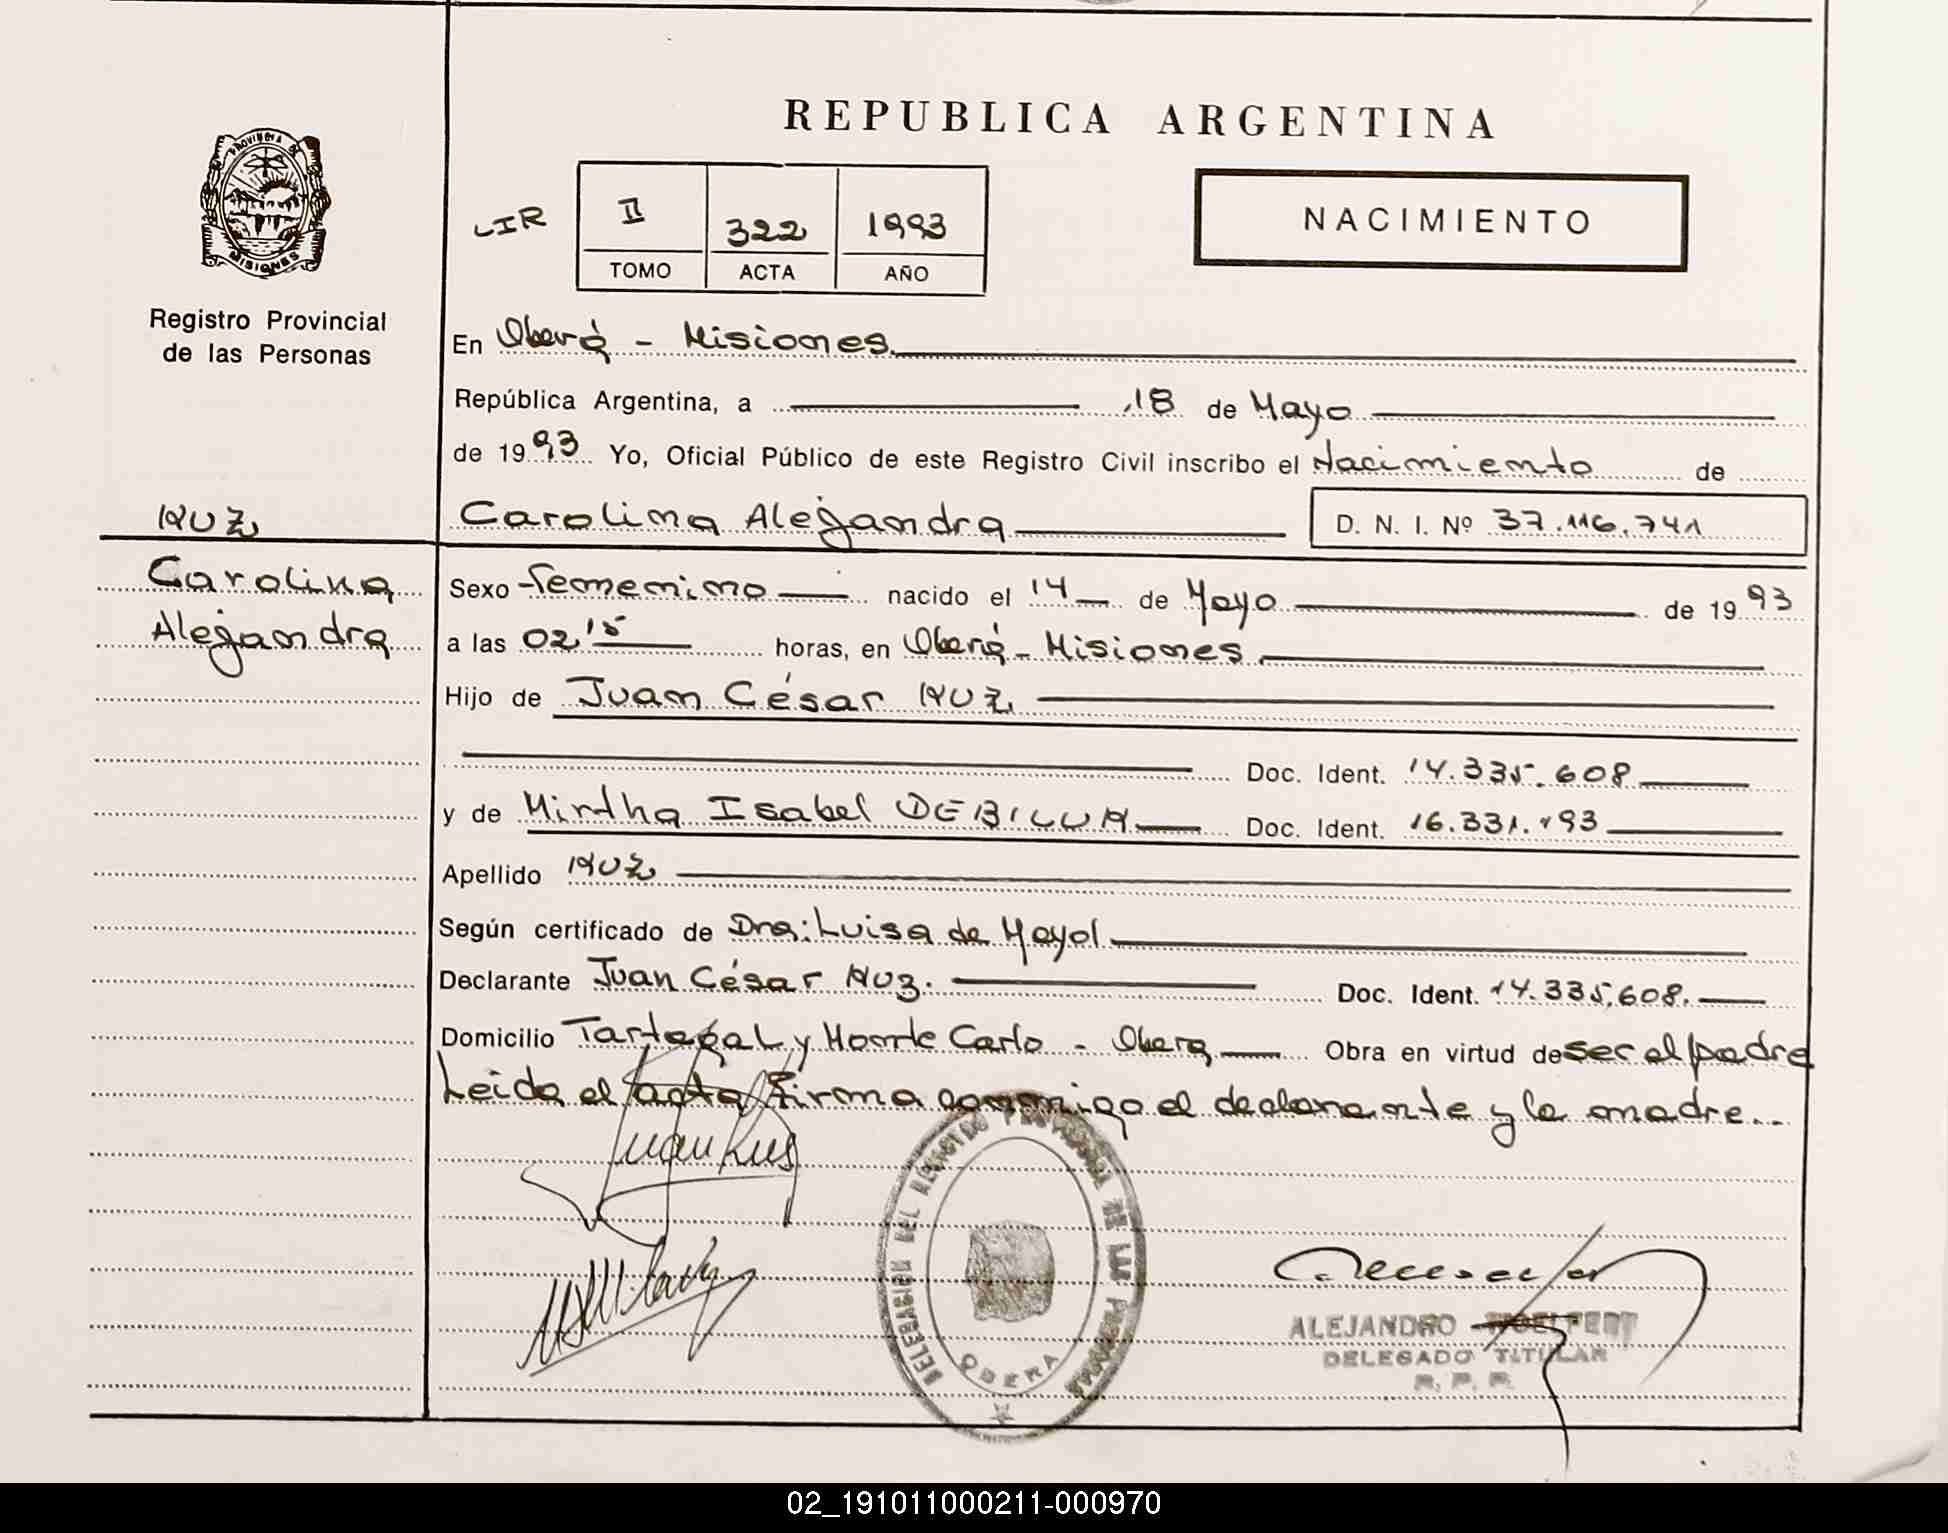 REPUBLICA ARGENTINA
PROVINCIA DE
MISIONES
Registro Provincial
de las Personas
LIR
II 322 1993
TOMO ACTA AÑO
NACIMIENTO
En Oberá - Misiones
República Argentina, a 18 de Mayo
de 1993 Yo, Oficial Público de este Registro Civil inscribo el Nacimiento de
KUZ
Carolina Alejandra D. N. I. Nº 37.116.741
Carolina
Alejandra
Sexo Femenino nacido el 14 de Mayo de 1993
a las 02 15 horas, en Oberá - Misiones
Hijo de Juan César KUZ
Doc. Ident. 14.335.608
y de Mirtha Isabel Doc. Ident. 16.331.193
Apellido KUZ
Según certificado de Dra: Luisa de Mayol
Declarante Juan César KUZ. Doc. Ident. 14.335.608.
Domicilio Tartagal y Monte Carlo - Oberá Obra en virtud de ser el padre
Leida el acta firma conmigo el declarante y la madre...
Juan Kus
DELEGACION DEL REGISTRO PROVINCIAL DE LAS PERSONAS
OBERA
ALEJANDRO
DELEGADO TITULAR
R. P. P.
02_191011000211-000970